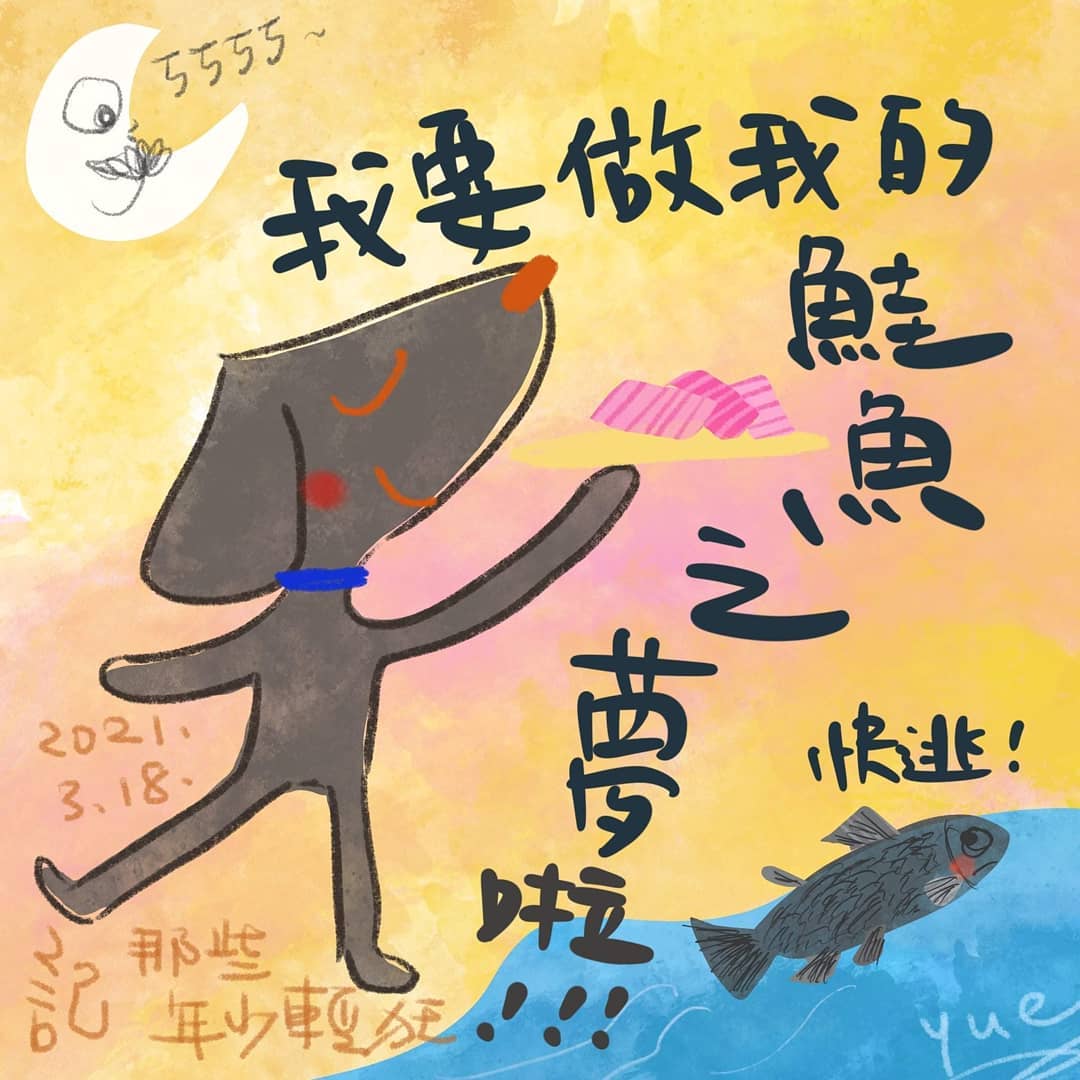 ㄎㄎㄎㄎ~
我要做我的
鮭
魚
之
夢
啦
!!!
快逃!
2021.
3.18.
記 那些
年少輕狂
yue